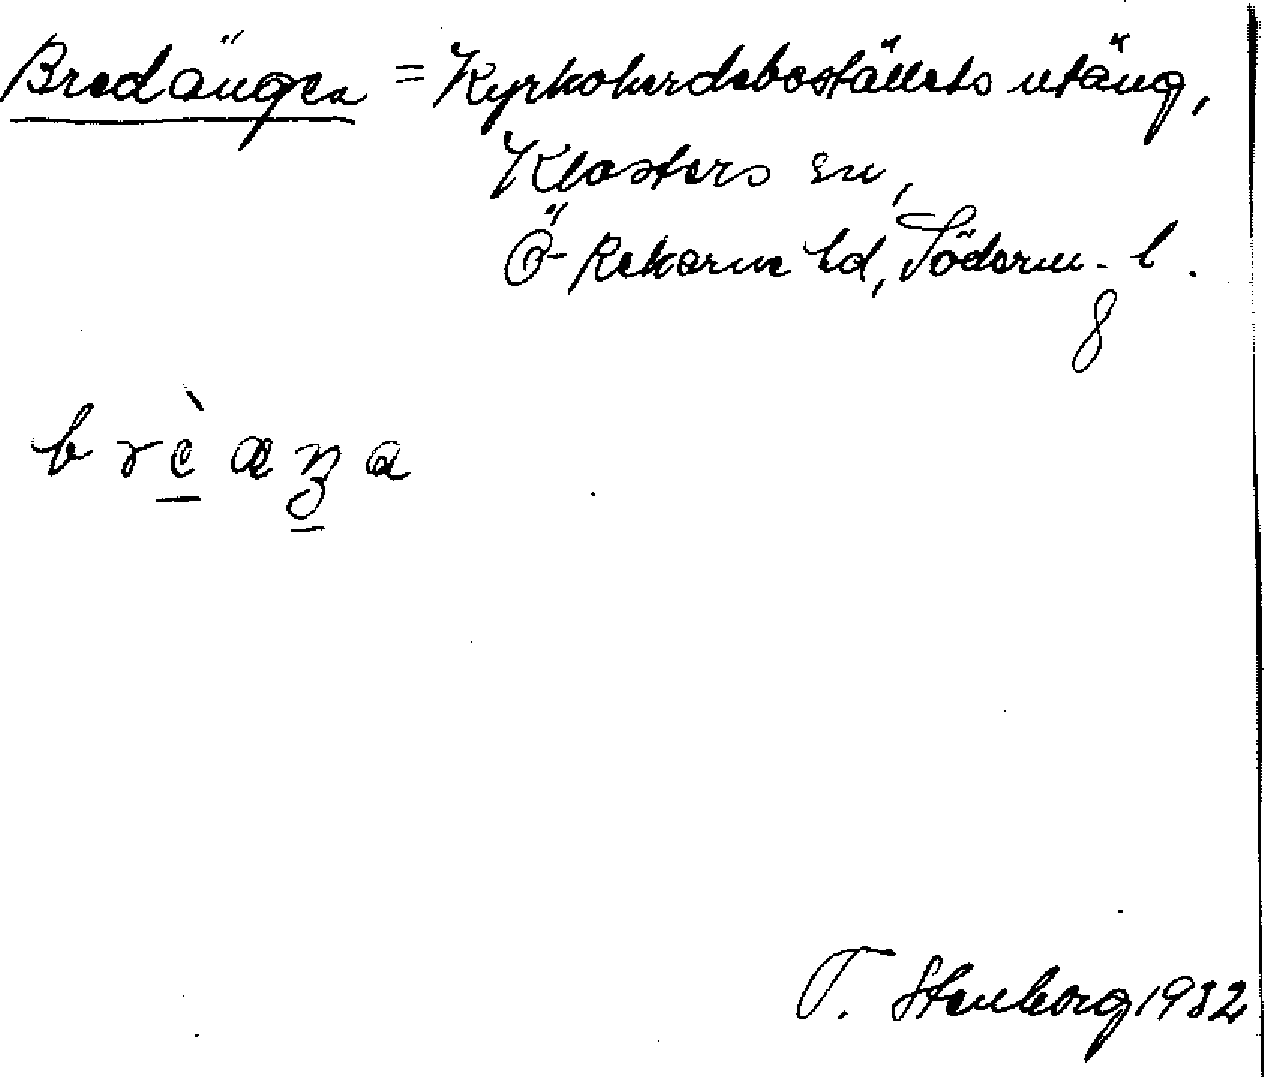 Bredängen = Kyrkoherdebostället​s utäng,
Klosters sn,
Ö-Rekarne hd, Söderm. l.
8
T. Stenborg 1932